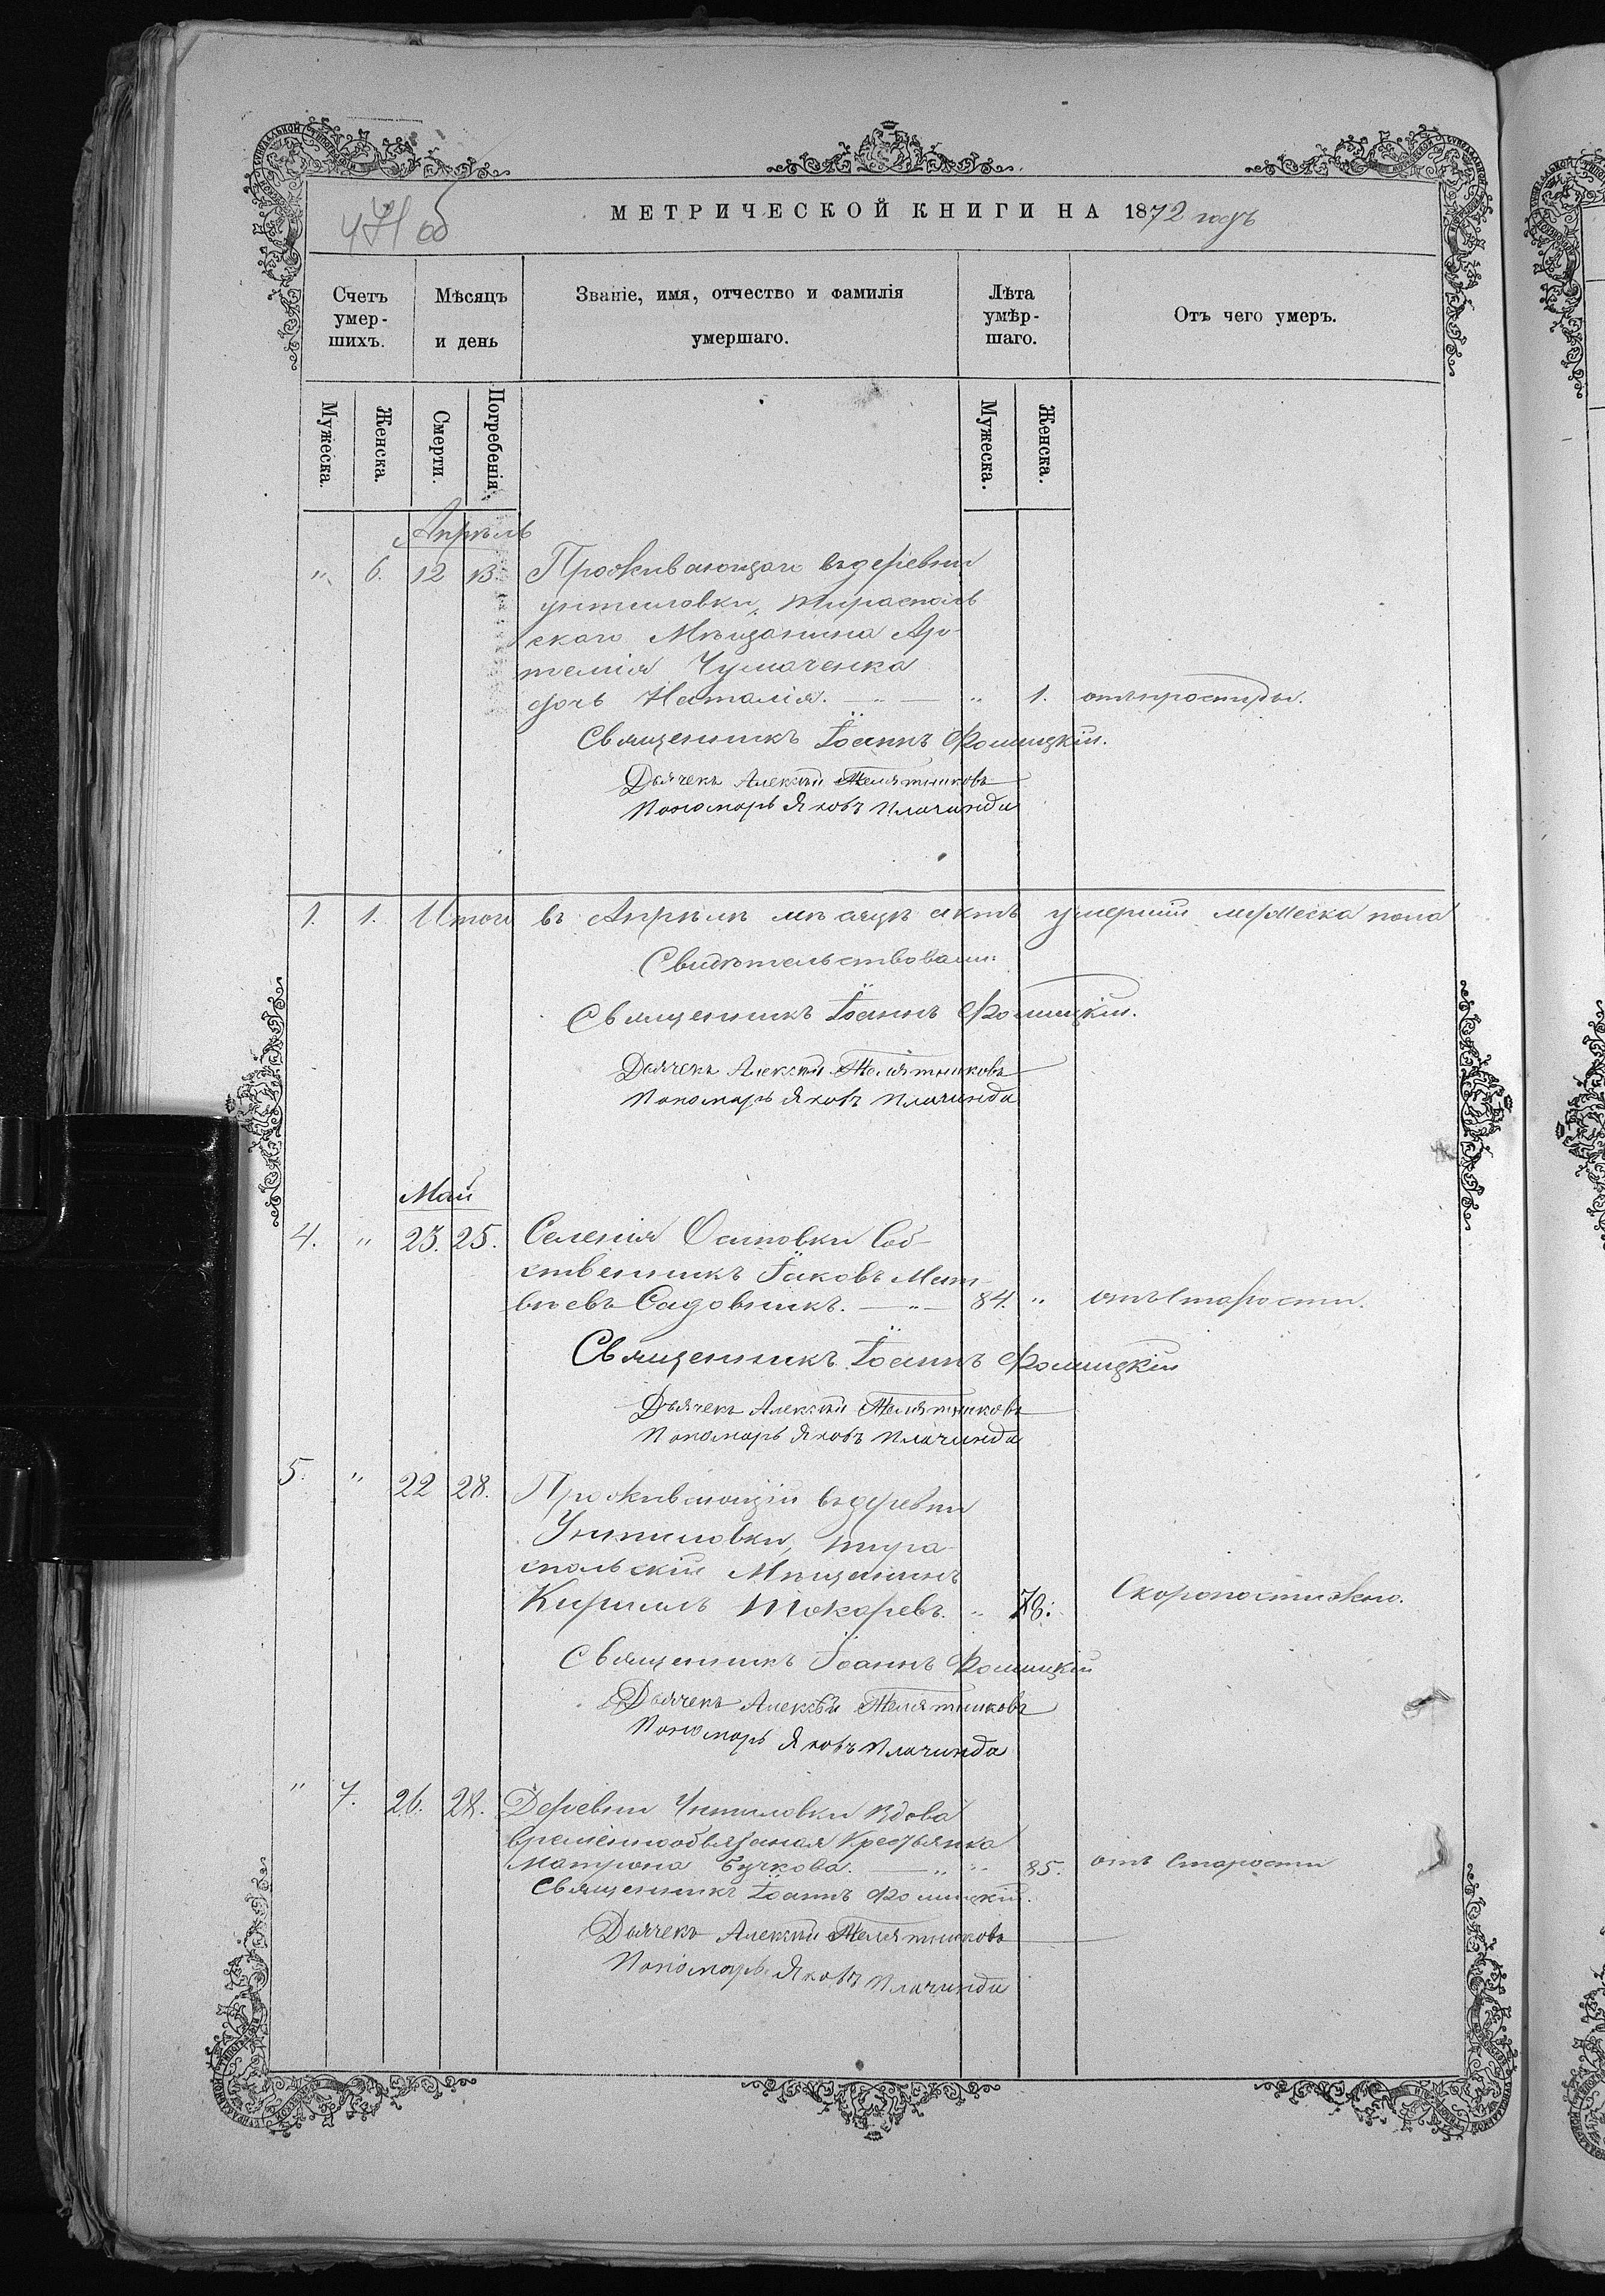 МЕТРИЧЕСКОЙ КНИГИ НА 1872 годъ
471 об
Счетъ умер-шихъ.
Мѣсяцъ и день
Званіе, имя, отчество и фамилія умершаго.
Лѣта умѣр-шаго.
Отъ чего умеръ.
Мужеска. Женска. Смерти. Погребенія. Мужеска. Женска.
Апрѣль
" 6. 12 13. Проживающаго въ деревни
унтиловки, тирасполь
скаго Мѣщанина Ар-
темія Чумаченка
дочь Наталія. — " — " 1. отъ простуды.
Священникъ Іоаннъ Фомицкій.
Дьячекъ Алексѣй Телятниковъ
Пономарь Яковъ Плачинда
1. 1. Итого въ Апрѣлѣ мѣсяцѣ умерши мужеска пола
Свидѣтельствовали:
Священникъ Іоаннъ Фомицкій.
Дьячекъ Алексѣй Телятниковъ
Пономарь Яковъ Плачинда
Май
4. " 23. 25. Селенія Осиповки Соб-
ственникъ Іаковъ Мат-
вѣевъ Садовникъ. — " — 84. " отъ Старости.
Священникъ Іоаннъ Фомицкій
Дьячекъ Алексѣй Телятниковъ
Пономарь Яковъ Плачинда
5. " 22 28. Проживающій въ деревни
Унтиловки, тира-
спольскій Мѣщанинъ
Кириллъ Токаревъ. " 78. Скоропостижно.
Священникъ Іоаннъ Фомицкій
Дьячекъ Алексѣй Телятниковъ
Пономарь Яковъ Плачинда
" 7. 26. 28. Деревни Унтиловки Вдова
временнообязаная Крестьянка
Матрона Бучкова. — " " 85. отъ Старости
Священникъ Іоаннъ Фомицкій.
Дьячекъ Алексѣй Телятниковъ
Пономарь Яковъ Плачинда